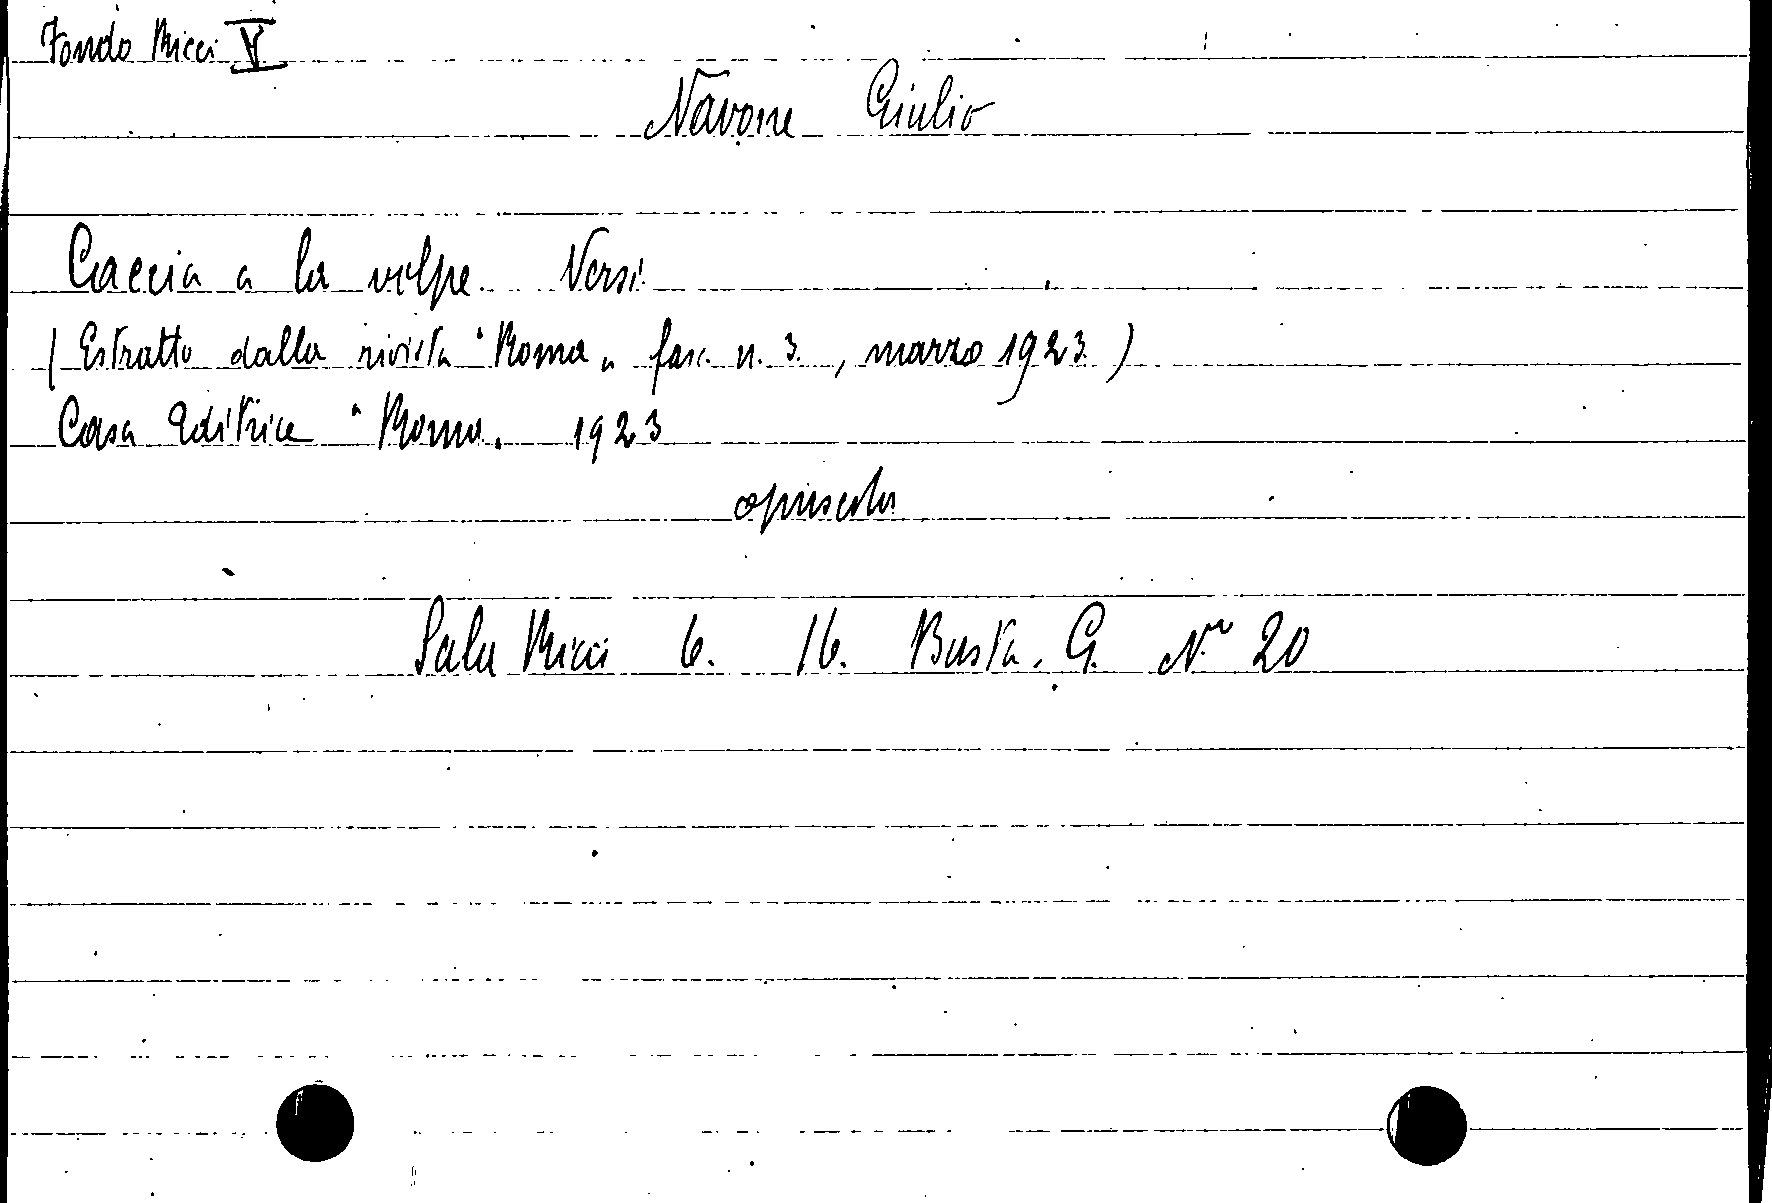 Fondo Ricci V
Navone Giulio
Caccia a la volpe. Versi
(Estratto dalla rivista "Roma" fasc. n. 3., marzo 1923.)
Casa Editrice "Roma". 1923
opuscolo
Sala Ricci 6. 16. Busta. G. N° 20